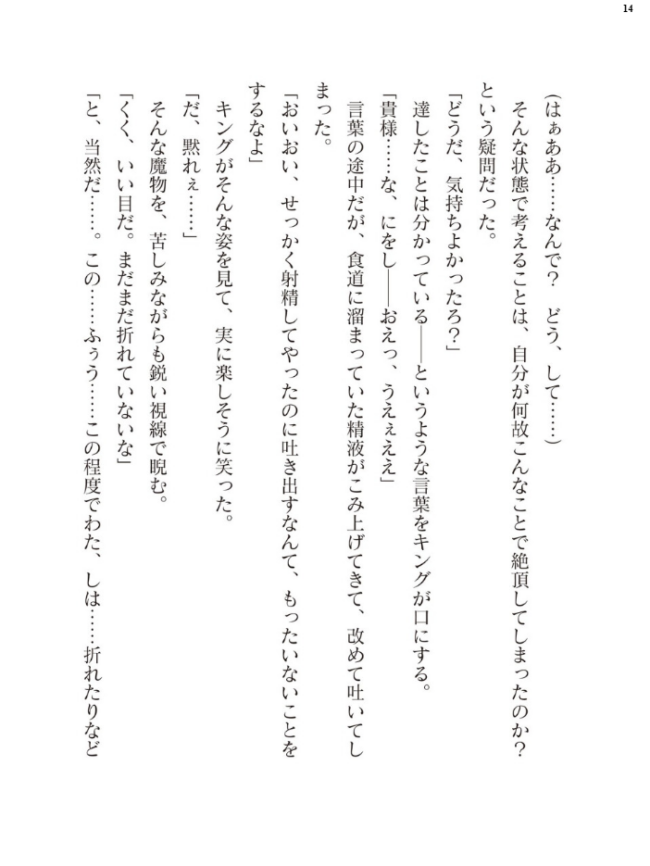 14
(はぁああ……なんで? どう、して……)
そんな状態で考えることは、自分が何故こんなことで絶頂してしまったのか?
という疑問だった。
「どうだ、気持ちよかったろ?」
達したことは分かっている――というような言葉をキングが口にする。
「貴様……な、にをし――おえっ、うえぇええ」
言葉の途中だが、食道に溜まっていた精液がこみ上げてきて、改めて吐いてし
まった。
「おいおい、せっかく射精してやったのに吐き出すなんて、もったいないことを
するなよ」
キングがそんな姿を見て、実に楽しそうに笑った。
「だ、黙れぇ……」
そんな魔物を、苦しみながらも鋭い視線で睨む。
「くく、いい目だ。まだまだ折れていないな」
「と、当然だ……。この……ふぅう……この程度でわた、しは……折れたりなど